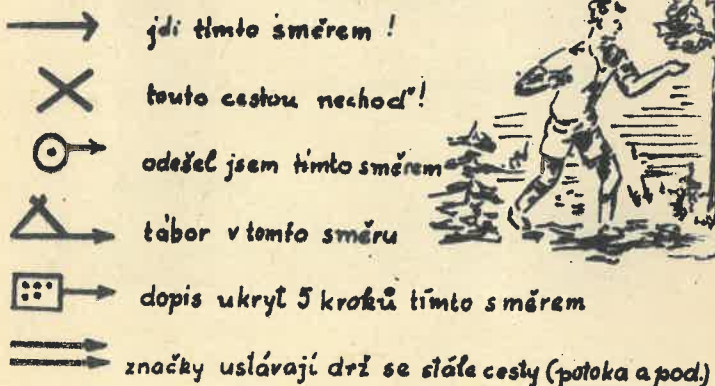 jdi tímto směrem!
touto cestou nechoď!
odešel jsem tímto směrem
tábor v tomto směru
dopis ukryt 5 kroků tímto směrem
značky ustávají drž se stále cesty (potoka a pod.)